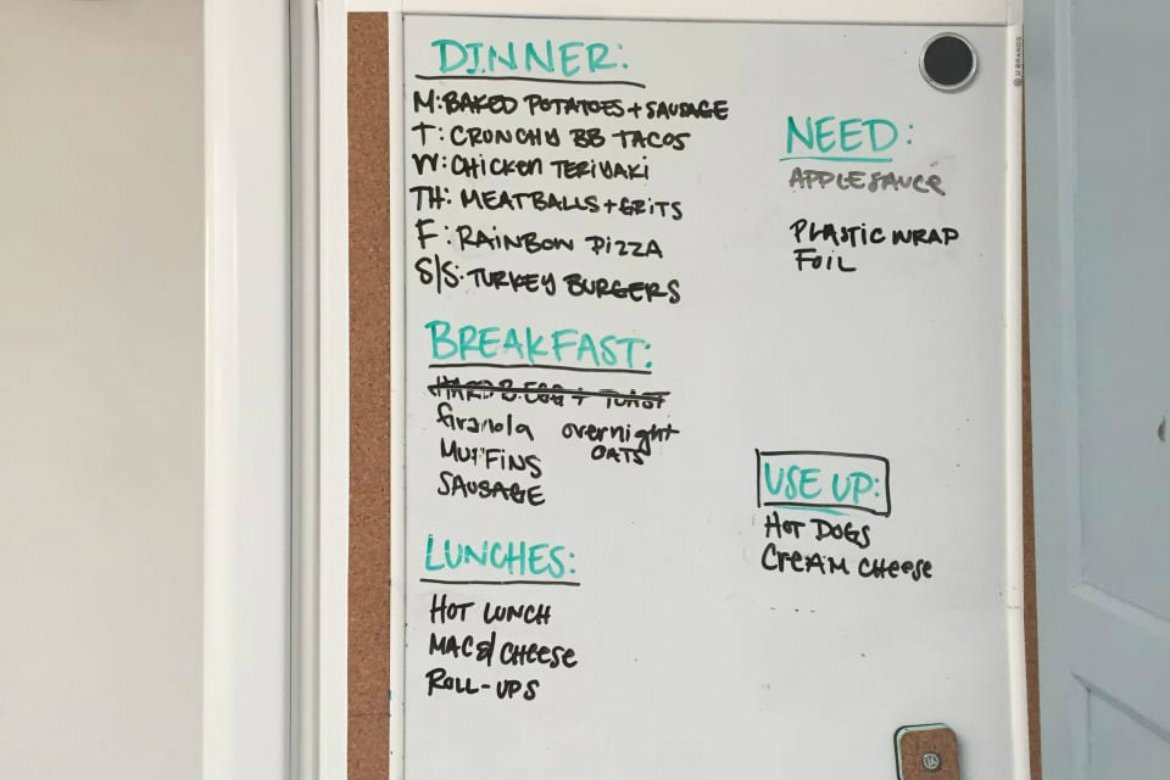 DINNER:
M: BAKED POTATOES + SAUSAGE
T: CRUNCHY BB TACOS
W: CHICKEN TERIYAKI
TH: MEATBALLS + GRITS
F: RAINBOW PIZZA
S/S: TURKEY BURGERS
BREAKFAST:
HARD B. EGG + TOAST
Granola overnight
MUFFINS OATS
SAUSAGE
LUNCHES:
HOT LUNCH
MAC & CHEESE
ROLL-UPS
NEED:
APPLESAUCE
PLASTIC WRAP
FOIL
USE UP:
HOT DOGS
CREAM CHEESE
U BRANDS